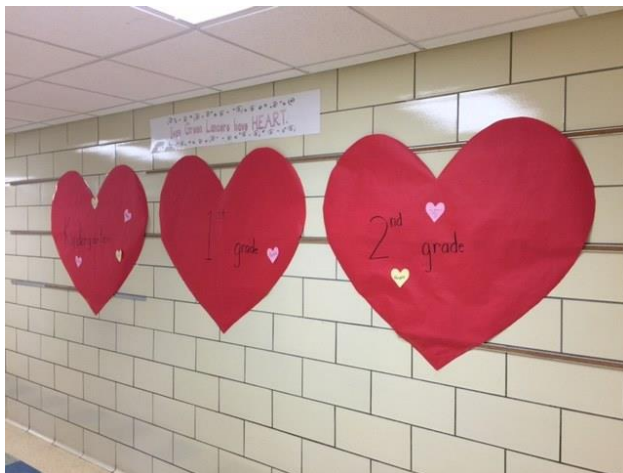 Lane Grade Lancers have HEART.
Kindergarten
1st
grade
2nd
grade